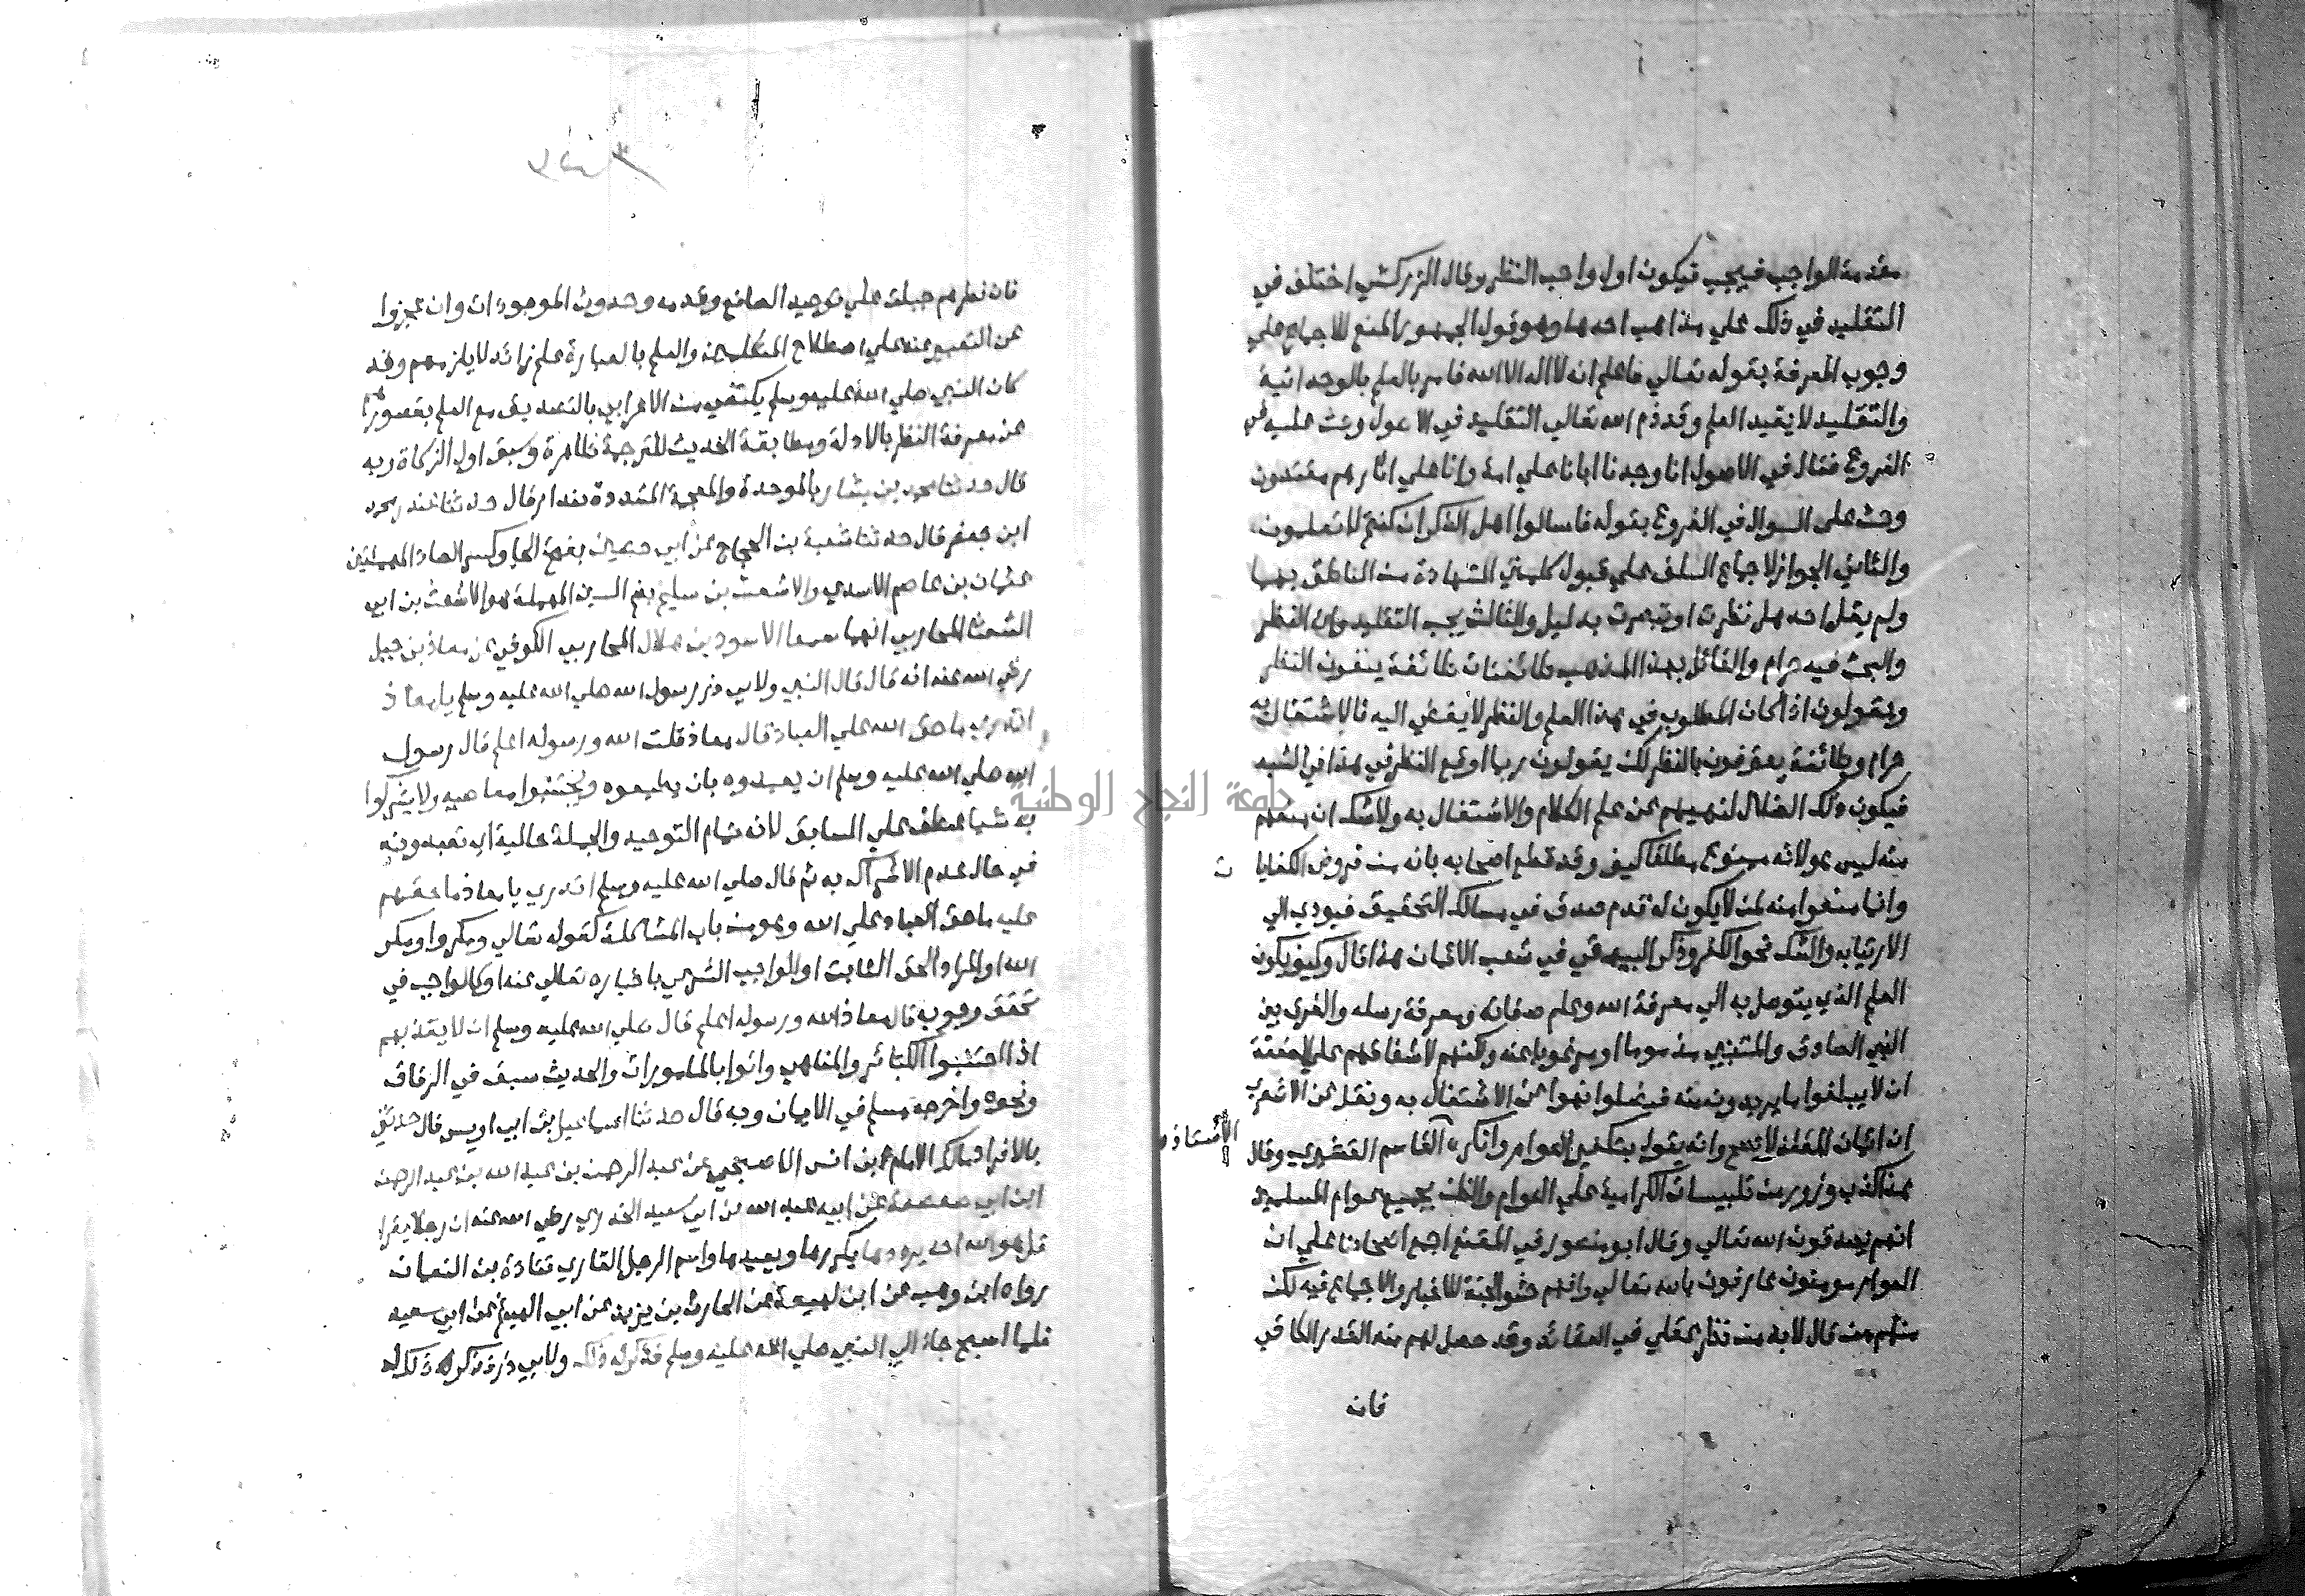 مقدمة الواجب فيجب فيكون اول واجب النظر وقال الزركشي اختلف في
التقليد في ذلك علي مذاهب احدها وهو قول الجمهور المنع للاجماع علي
وجوب المعرفة بقوله تعالي فاعلم انه لا اله الا الله فامر بالعلم بالوحدانية
والتقليد لا يفيد العلم وقد ذم الله تعالي التقليد في الاصول وحث عليه في
الفروع فقال في الاصول انا وجدنا اباءنا علي امة وانا علي اثارهم مقتدون
وحث علي السوال في الفروع بقوله فاسالوا اهل الذكر ان كنتم لا تعلمون
والثاني الجواز لاجماع السلف علي قبول كلمتي الشهادة من الناطق بهما
ولم يقل احد هل نظرت او تبصرت بدليل والثالث يجب التقليد وان النظر
والبحث فيه حرام والقائل بهذا المذهب طائفتان طائفة ينفون النظر
ويقولون اذا كان المطلوب في هذا العلم والنظر لا يفضي اليه فالاشتغال به
حرام وطائفة يعترفون بالنظر لكن يقولون ربما اوقع النظر في هذا في الشبه
فيكون ذلك الضلال لنهيهم عن علم الكلام والاشتغال به ولا شك ان منعهم
منه ليس هو لانه ممنوع مطلقا كيف وقد قطع اصحابه بانه من فروض الكفايات
وانما منعوا منه لمن لا يكون له قدم صدق في مسالك التحقيق فيودي الي
الارتياب والشك نحو الكفر وذكر البيهقي في شعب الايمان هذا قال وكيف يكون
العلم الذي يتوصل به الي معرفة الله وعلم صفاته ومعرفة رسله والفرق بين
النبي الصادق والمتنبي مذموما او مرغوبا عنه ولكنهم لاشفاقهم علي الضعفة
ان لا يبلغوا ما يريدون منه فيضلوا نهوا عن الاشتغال به ونقل عن الاشعري
ان ايمان المقلد لا يصح وانه يقول بتكفير العوام وانكره القاسم القشيري وقال
الاستاذ
هذا كذب وزور من تلبيسات الكرامية علي العوام والظن بجميع عوام المسلمين
انهم يصدقون الله تعالي وقال ابو منصور في المقنع اجمع اصحابنا علي ان
العوام مومنون عارفون بالله تعالي وانهم حشو الجنة للاخبار والاجماع فيه لكن
منهم من قال لا بد من نظر عقلي في العقائد وقد حصل لهم منه القدر الكافي
فان
فان فطرهم جبلت علي توحيد الصانع وقدمه وحدوث الموجودات وان عجزوا
عن التعبير عنه علي اصطلاح المتكلمين والعلم بالعبارة علم زائد لا يلزمهم وقد
كان النبي صلي الله عليه وسلم يكتفي من الاعرابي بالتصديق مع العلم بقصورهم
عن معرفة النظر بالادلة ومطابقة الحديث للترجمة ظاهرة وسبق اول الزكاة وبه
قال حدثنا محمد بن بشار بالموحدة والمعجمة المشددة بندار قال حدثنا غندر محمد
ابن جعفر قال حدثنا شعبة بن الحجاج عن ابي حصين بفتح الحا وكسر الصاد المهملتين
عثمان بن عاصم الاسدي والاشعث بن سليم بضم السين المهملة هو الاشعث بن ابي
الشعثا المحاربي انهما سمعا الاسود بن هلال المحاربي الكوفي عن معاذ بن جبل
رضي الله عنه انه قال قال النبي ولابي ذر رسول الله صلي الله عليه وسلم يا معاذ
اتدري ما حق الله علي العباد قال معاذ قلت الله ورسوله اعلم قال رسول
الله صلي الله عليه وسلم ان يعبدوه بان يطيعوه ويجتنبوا معاصيه ولا يشركوا
به شيا عطف علي السابق لانه تمام التوحيد والجملة حالية اي تعبدونه
في حال عدم الاشراك به ثم قال صلي الله عليه وسلم اتدري يا معاذ ما حقهم
عليه ما حق العباد علي الله وهو من باب المشاكلة كقوله تعالي ومكروا ومكر
الله او المراد الحق الثابت او الواجب الشرعي باخباره تعالي عنه او كالواجب في
تحقق وجوبه قال معاذ الله ورسوله اعلم قال صلي الله عليه وسلم ان لا يعذبهم
اذا اجتنبوا الكبائر والمناهي واتوا بالمامورات والحديث سبق في الرقاق
ونحوه واخرجه مسلم في الايمان وبه قال حدثنا اسماعيل بن ابي اويس قال حدثني
بالافراد مالك الامام بن انس الاصبحي عن عبد الرحمن بن عبد الله بن عبد الرحمن
ابن ابي صعصعة عن ابيه عبد الله عن ابي سعيد الخدري رضي الله عنه ان رجلا يقرا
قل هو الله احد يرددها يكررها ويعيدها واسم الرجل القاري قتادة بن النعمان
رواه ابن وهب عن ابن لهيعة عن الحارث بن يزيد عن ابي الهيثم عن ابي سعيد
فلما اصبح جاء الي النبي صلي الله عليه وسلم فذكر له ذلك ولابي ذر فذكر ذلك له
جامعة النجاح الوطنية